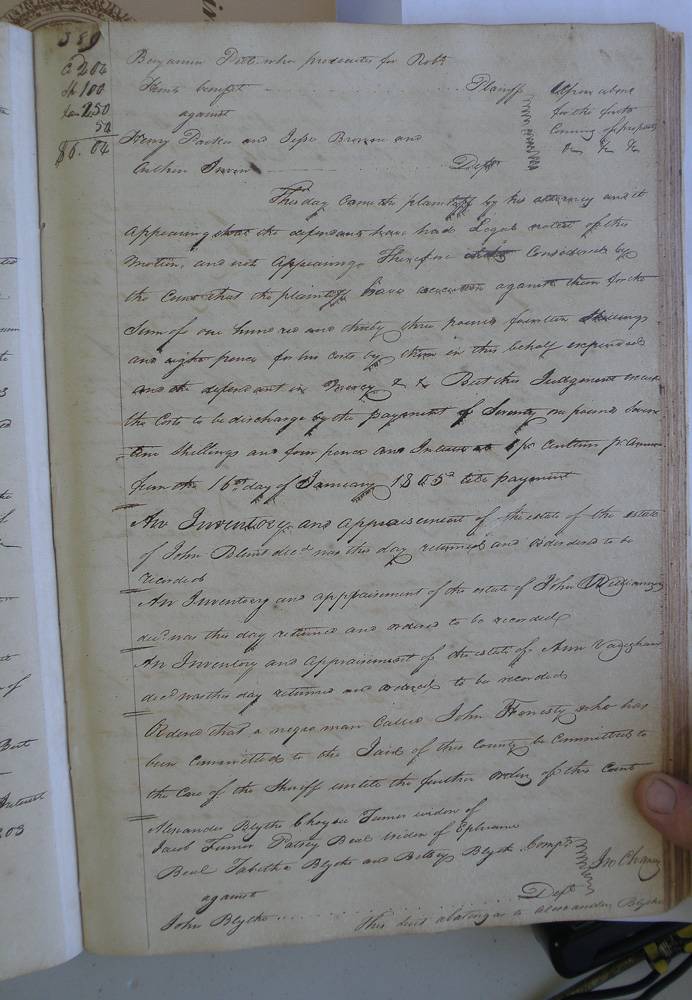 389
C 204
Sh 100
250
50
$6.04
Benjamin who prosecutes for Robt
benefit Plantiff Upon a bond
against for the forth
Henry Parker and Jesse Brown and Coming of property
Defts & & &
This day Came the plaintiff by his attorney and it
Appearing that the defendants have had Legal notest of this
Motion, and not Appearing Therefore Considered by
the Court that the plaintiff have execution against them for the
Sum of one hundred and thirty three pounds fourteen Shillings
and eight pence for his costs by them in this behalf expended
and the defendant in Mercy & & But this Judgement
the Costs to be discharge by the payment of Seventy one pound
Shillings and four pence and Interest pr Centum pr Annum
from the 16th day of January 1805 payment
An Inventory and appraisement of the estate of the estate
of John decd was this day returned and ordered to be
recorded
An Inventory and appraisement of the estate of John Williamson
decd was this day returned and ordered to be recorded
An Inventory and Appraisement of the estate of Ann Vaughan
decd was this day returned and ordered to be recorded
Ordered that a negro man Called John Honesty who has
been Committed to the Jail of this County be Committed to
the Care of the Sheriff untill the further order of this Court
Alexander Blythe Turner widow of
Jacob Turner Patsey Beal widow of Ephraim
Beal Tabitha Blythe and Betsey Blythe Compts In Chancy
against
John Blythe Deft
This suit abating as to Alexander Blythe